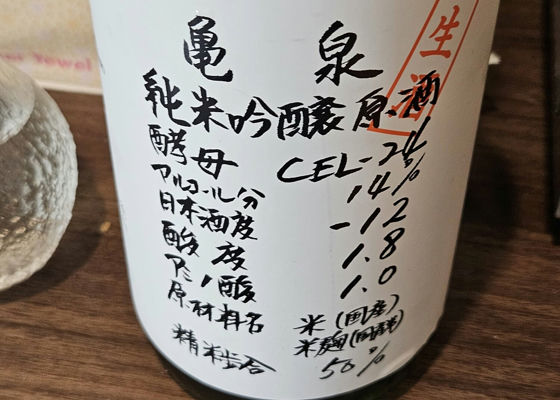 生酒
亀泉
純米吟醸原酒
酵母 CEL-24
アルコール分 14%
日本酒度 -12
酸度 1.8
アミノ酸 1.0
原材料名 米(国産)
米麹(国産)
精米歩合 50%
Towel